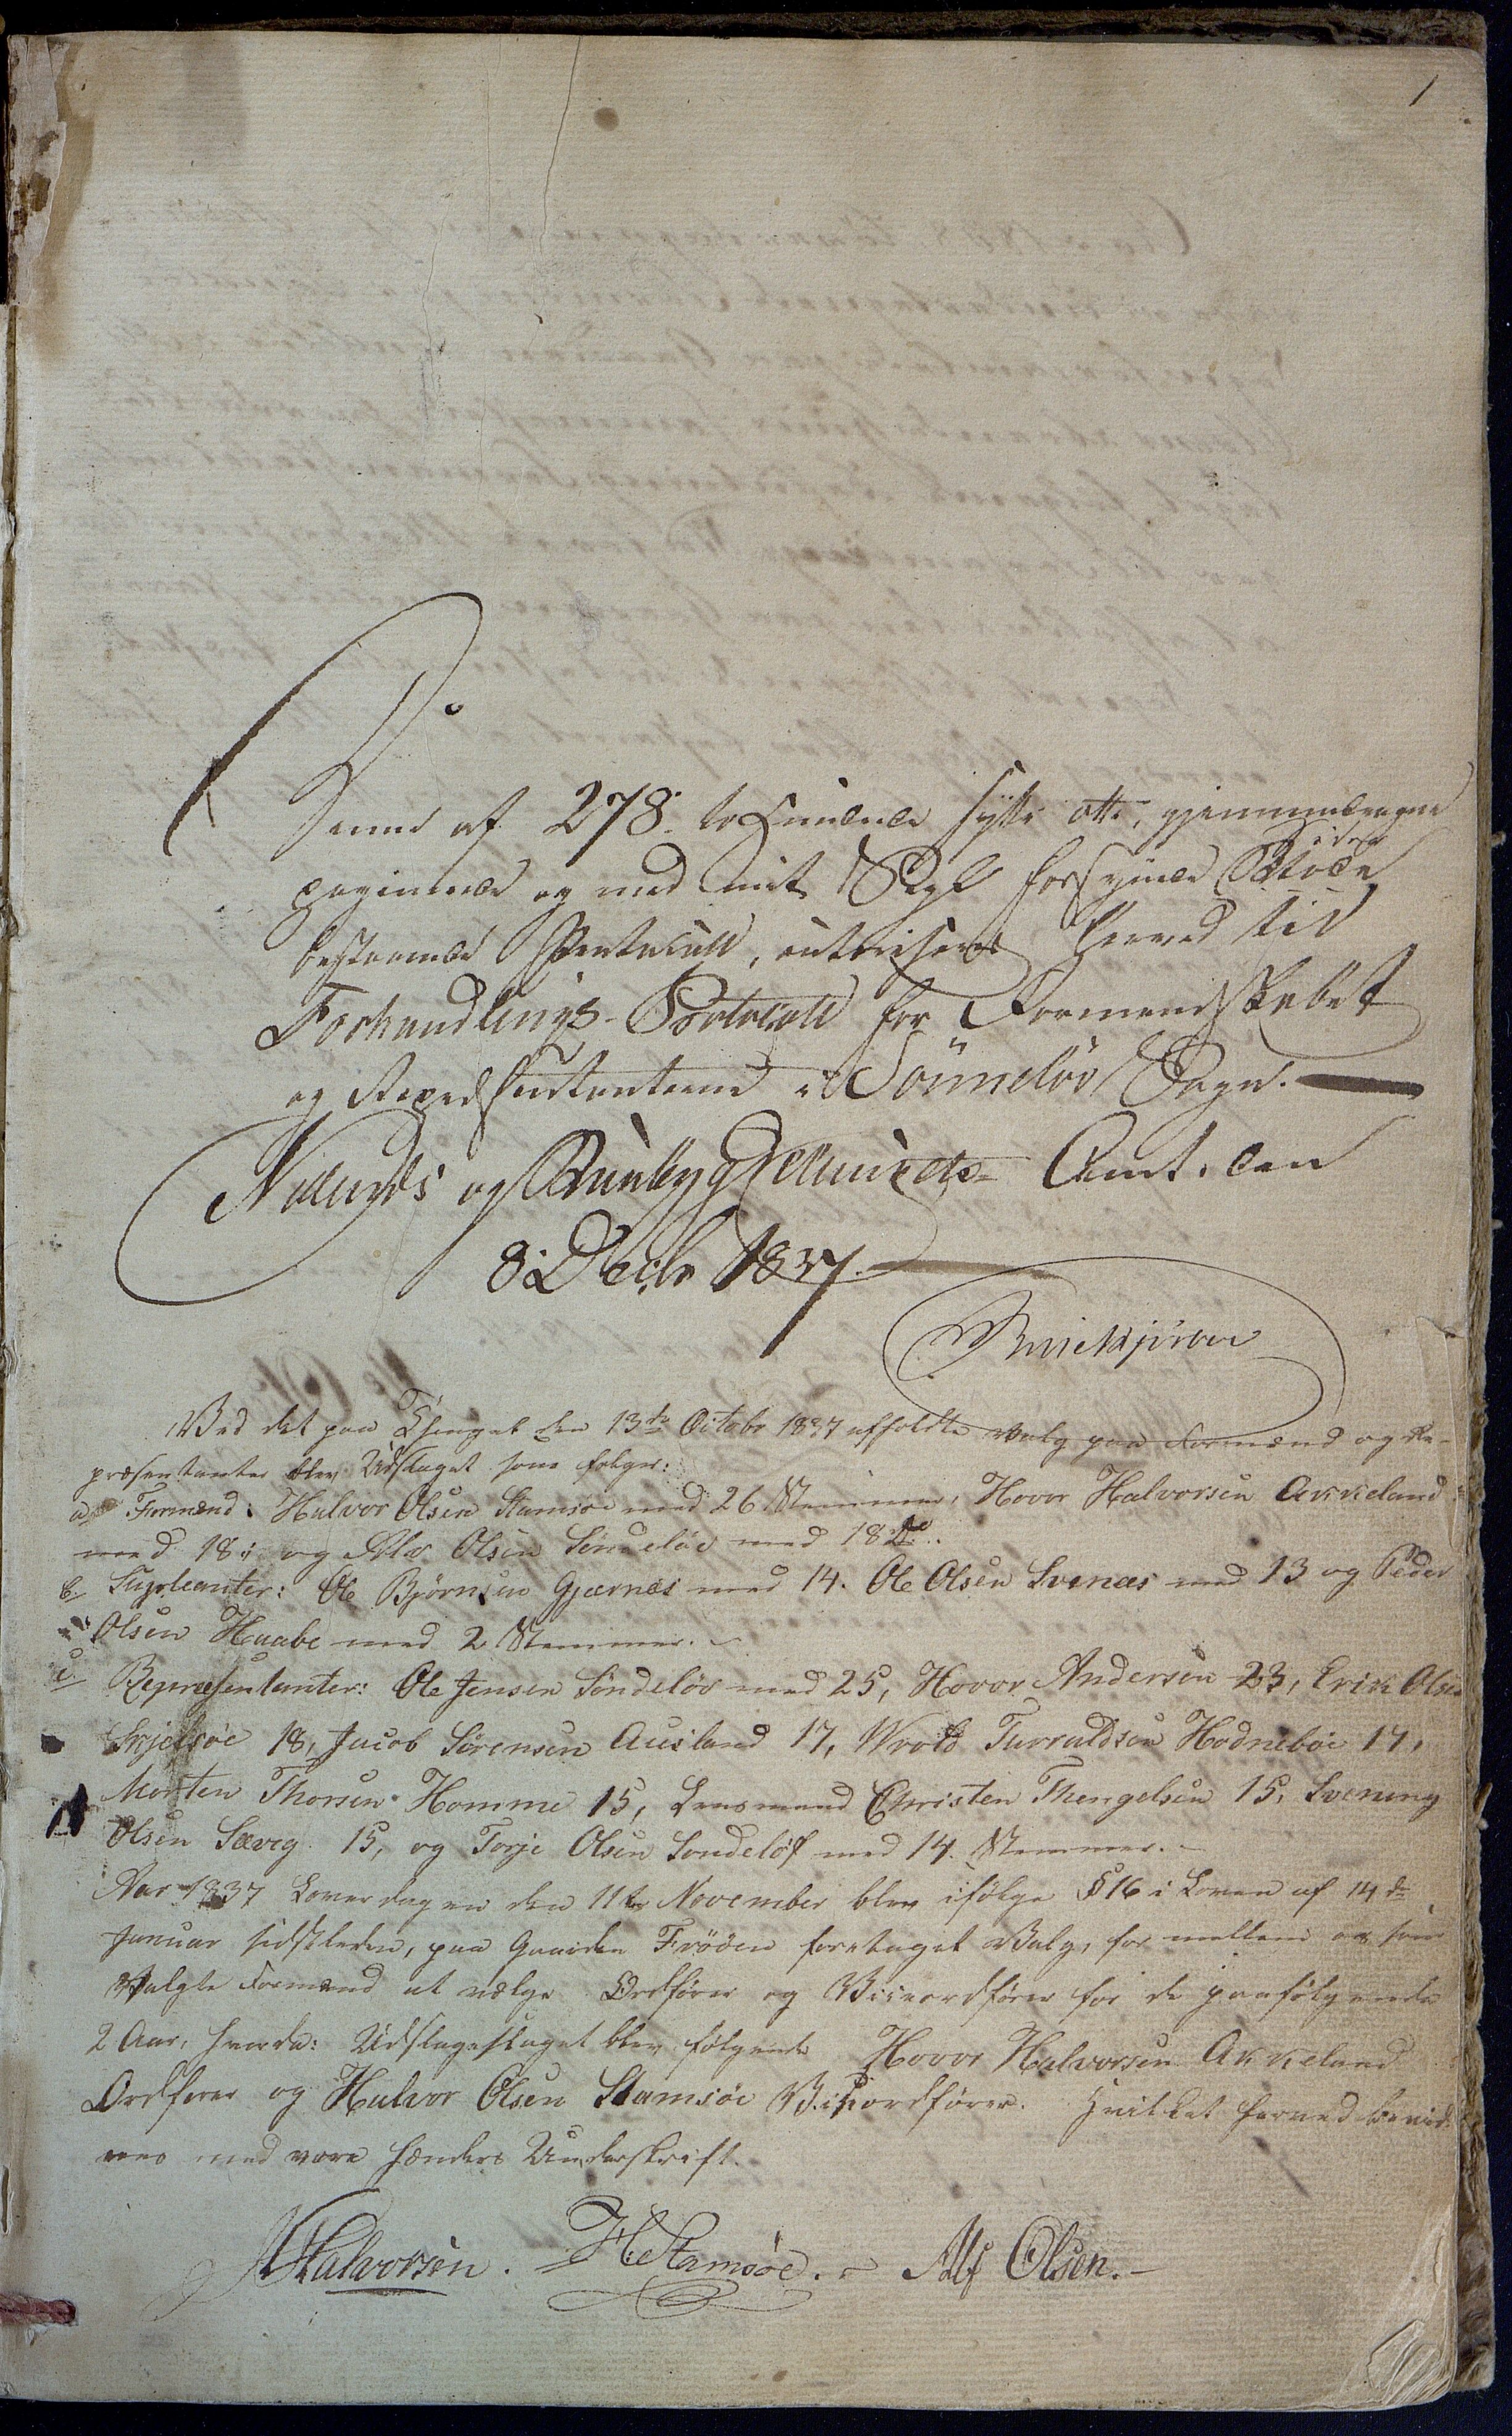 1
Denne af 278. tohundrede sytti otte, gjennemdragne
paginerede og med mit Segl forsynede Sider
bestaaende Protocoll, autoriseres herved til
Forhandlings-Protocoll for Formandskabet
og Repræsentanterne i Sönneløv Sogn.
Nedenæs og Raabygdelaugets Amt. den
8. Decbr 1837.
Ved det paa Thinget den 13de Octobr 1837 afholdte Valg paa Formænd og Re-
præsentanter blev Udslaget som følger:
a Formænd: Halvor Olsen Stamsøe med 26 Stemmer, Hovor Halvorsen Akkeland
med 18; og Alv Olsen Søndeløv med 18 do.
b. Suppleanter: Ole Bjørnsen Gjærnæs med 14. Ole Olsen Svenæs med 13 og Peder
Olsen Haabe med 2 Stemmer.
c. Repræsentanter: Ole Jensen Søndeløv med 25, Hovor Andersen 23, Erik Olsen
Skjelsøe 18, Jacob Sørensen Ausland 17, Wrold Turraldsen Hodnebøe 17,
Morten Thorsen Homme 15, Lensmand Christen Thengelsen 15, Svening
Olsen Sævig 15, og Torje Olsen Sondeløf med 14 Stemmer.
Aar 1837 Løverdagen den 11te November blev ifølge § 16 i Loven af 14de
Januar sidstleden, paa Gaarden Frøöen foretaget Valg, for mellem os som
Valgte Formænd at vælge Ordfører og Viceordfører for de paafølgende
2 Aar, hvorda: Udslaget blev følgende Hovor Halvorsen Akkeland
Ordfører og Halvor Olsen Stamsøe Viceordfører. Hvilket herved bevid-
nes med vore Hænders Underskrift.
HHalvorsen. H. Stamsøe. Alf Olsen.